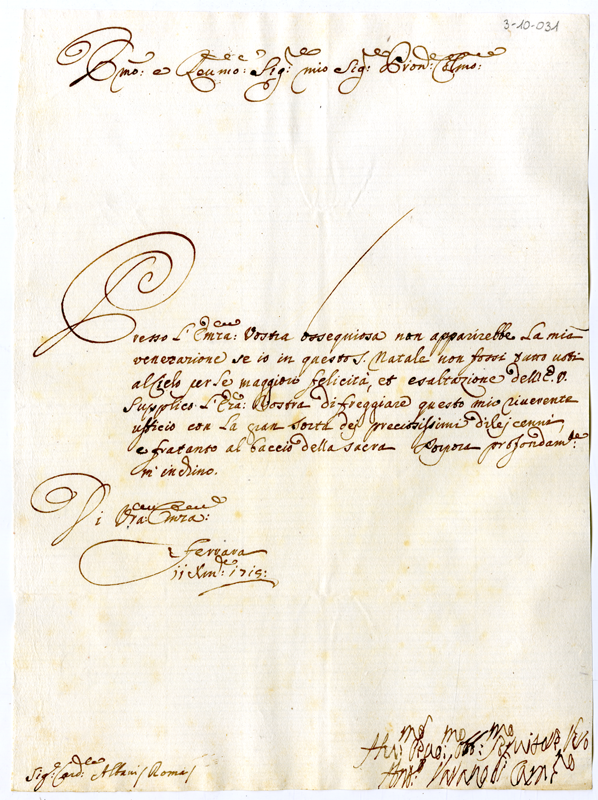 3-10-031
Emo: e Reumo: Sig: mio Sig: Pron: Colmo:
Presso L'Emza: Vostra ossequiosa non apparirebbe La mia
venerazione se io in questo S. Natale non fossi
al Cielo per Le maggiori felicità, et esaltazione dell'E. V.
Supplico L'Eza: Vostra di freggiare questo mio riverente
ufficio con La gran sorte dei precisissimi di Lej cenni,
e fratanto al baccio della sacra Porpora profondamte:
m'inchino.
Di Vra: Emza:
Ferrara
11 Xmbe: 1715:
Sigr. Card. Albani Roma